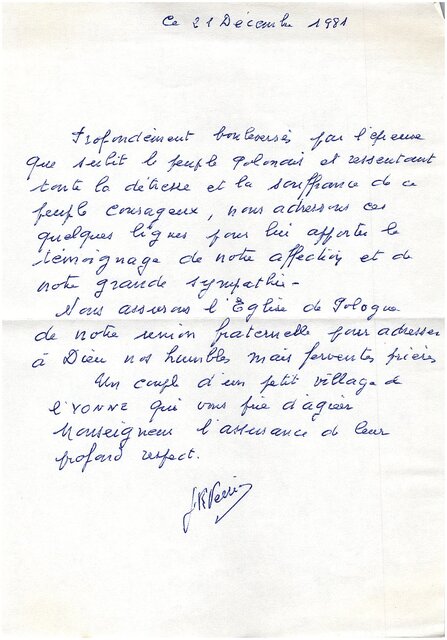 Ce 21 Décembre 1981
Profondément bouleversés par l'épreuve
que subit le peuple Polonais et ressentant
toute la détresse et la souffrance de ce
peuple courageux, nous adressons ces
quelques lignes pour lui apporter le
témoignage de notre affection et de
notre grande sympathie -
Nous assurons l'Eglise de Pologne
de notre union fraternelle pour adresser
à Dieu nos humbles mais ferventes prières
Un couple d'un petit village de
l'YONNE qui vous prie d'agréer
Monseigneur l'assurance de leur
profond respect.